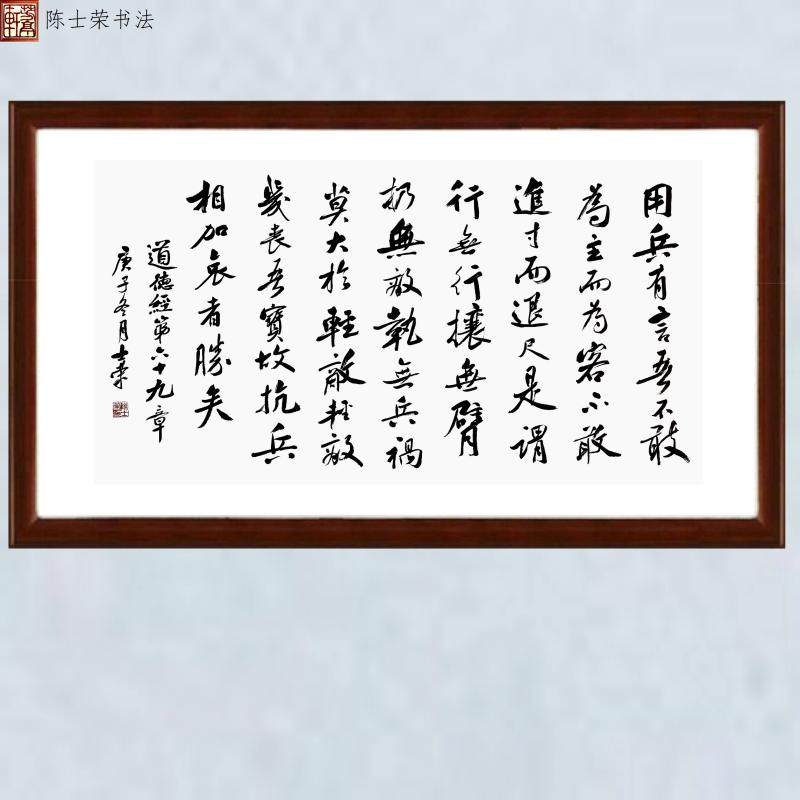 陈士荣书法
用兵有言吾不敢
為主而為客不敢
進寸而退尺是謂
行無行攘無臂
扔無敵執無兵禍
莫大於輕敵輕敵
幾喪吾寶故抗兵
相加哀者勝矣
道德經第六十九章
庚子冬月士荣